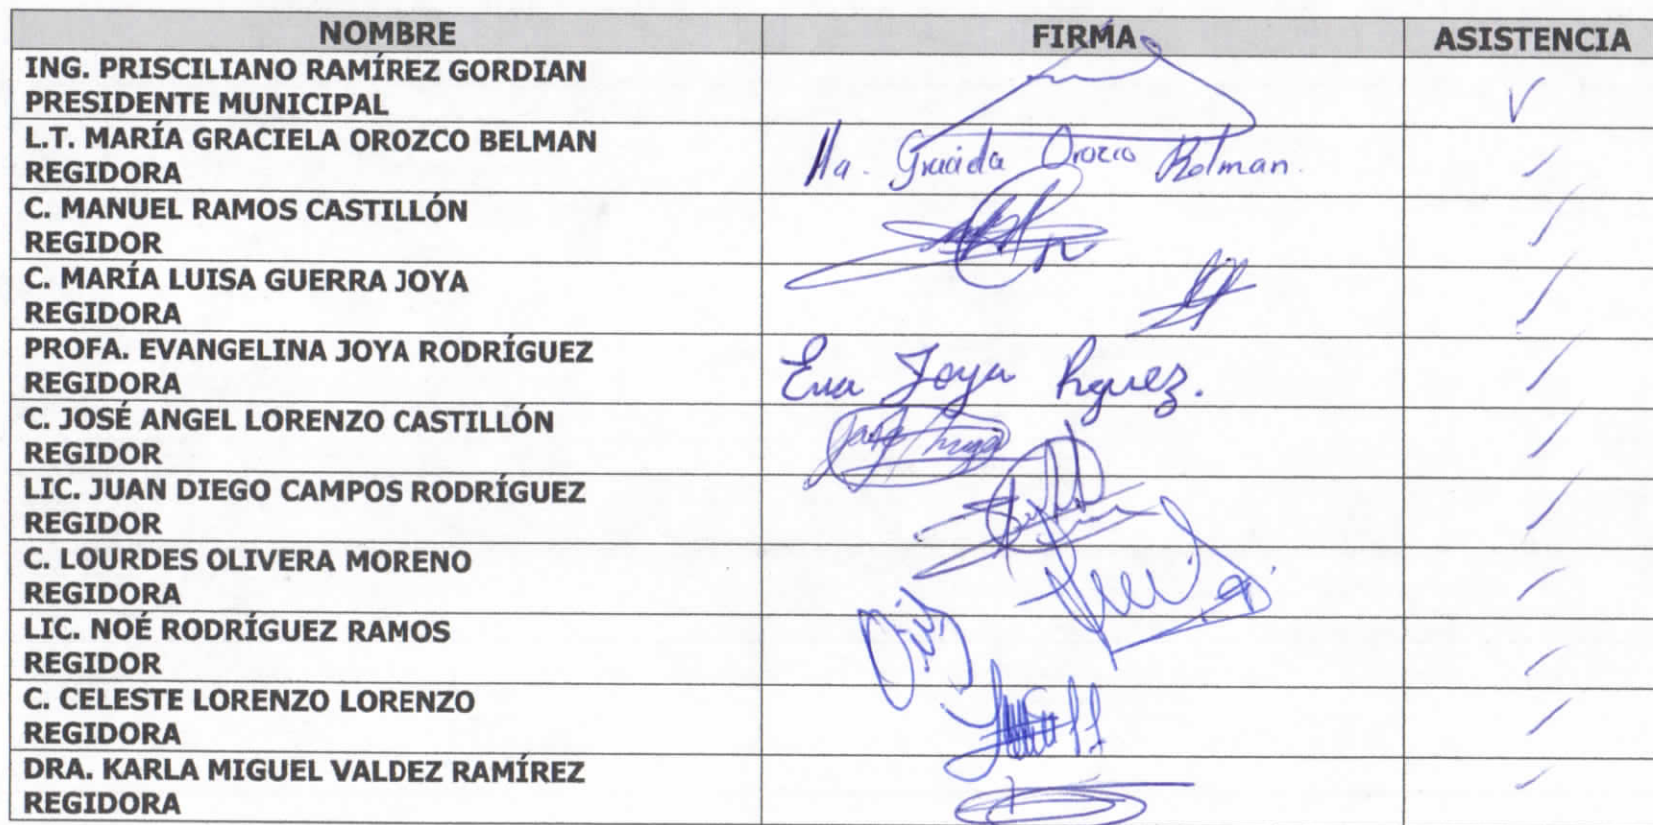 NOMBRE FIRMA ASISTENCIA
ING. PRISCILIANO RAMÍREZ GORDIAN
PRESIDENTE MUNICIPAL
L.T. MARÍA GRACIELA OROZCO BELMAN
REGIDORA
Ma. Graciela Orozco Belman.
C. MANUEL RAMOS CASTILLÓN
REGIDOR
C. MARÍA LUISA GUERRA JOYA
REGIDORA
PROFA. EVANGELINA JOYA RODRÍGUEZ
REGIDORA
Eva Joya Rguez.
C. JOSÉ ANGEL LORENZO CASTILLÓN
REGIDOR
LIC. JUAN DIEGO CAMPOS RODRÍGUEZ
REGIDOR
C. LOURDES OLIVERA MORENO
REGIDORA
LIC. NOÉ RODRÍGUEZ RAMOS
REGIDOR
C. CELESTE LORENZO LORENZO
REGIDORA
DRA. KARLA MIGUEL VALDEZ RAMÍREZ
REGIDORA